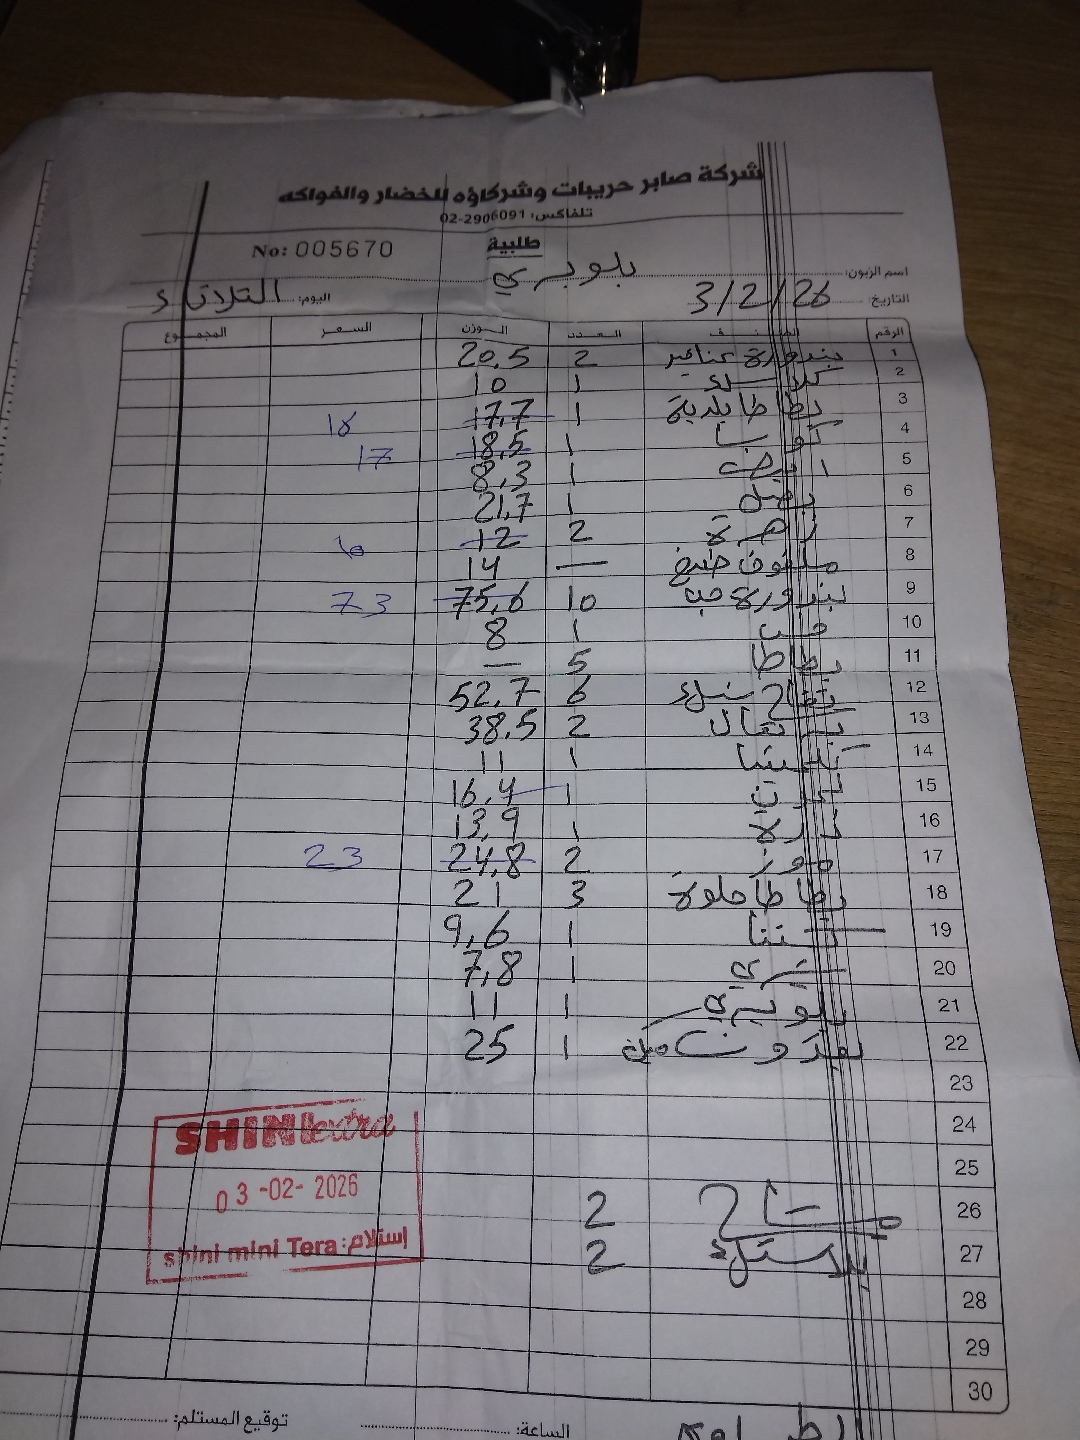 شركة صابر حريبات وشركاؤه للخضار والفواكه
تلفاكس: 02-2906091
No: 005670 طلبية
اسم الزبون: بلوبري
التاريخ: 3/2/26 اليوم: الثلاثاء
الرقم الصنف العدد الوزن السعر المجموع
1 بندورة عناقيد 2 20.5
2 1 10
3 بطاطا بلدية 1 17,7 18
4 1 18,5 17
5 ابيض 1 8,3
6 بصل 1 21,7
7 زهرة 2 12 6
8 ملفوف طبيخ — 14
9 بندورة حب 10 75,6 73
10 1 8
11 بطاطا 5 —
12 تفاح سلك 6 52,7
13 برتقال 2 38.5
14 كلمنتينا 1 11
15 1 16,4
16 1 13,9
17 موز 2 24,8 23
18 بطاطا حلوة 3 21
19 1 9,6
20 1 7,8
21 1 11
22 1 25
23
24
25
26 2
27 بلاستيك 2
28
29
30
SHINI extra
03-02-2026
shini mini Tera: إستلام
الساعة: توقيع المستلم: